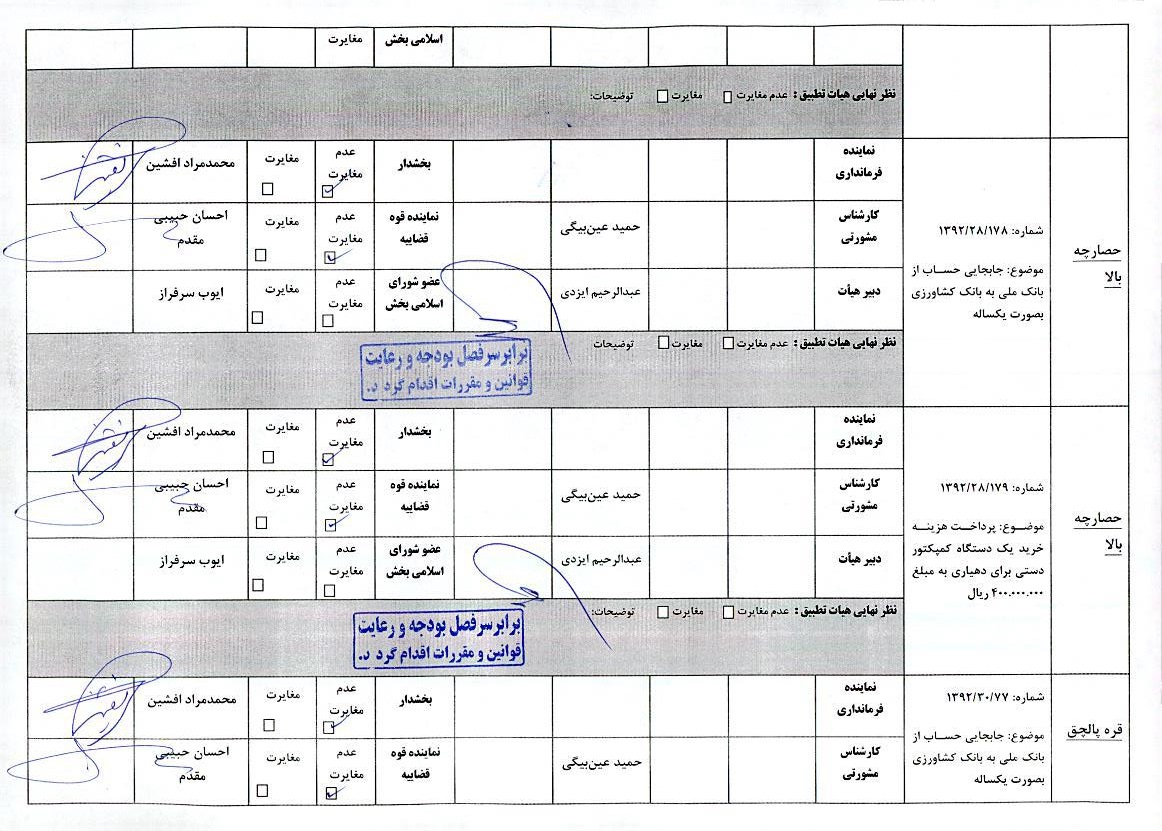 اسلامی بخش
مغایرت
نظر نهایی هیات تطبیق: عدم مغایرت □ مغایرت □ توضیحات:
حصارچه
بالا
شماره: ۱۳۹۲/۲۸/۱۷۸
موضوع: جابجایی حساب از
بانک ملی به بانک کشاورزی
بصورت یکساله
نماینده
فرمانداری
بخشدار
عدم
مغایرت
مغایرت
محمدمراد افشین
کارشناس
مشورتی
حمید عین‌بیگی
نماینده قوه
قضاییه
عدم
مغایرت
مغایرت
احسان حبیبی
مقدم
دبیر هیأت
عبدالرحیم ایزدی
عضو شورای
اسلامی بخش
عدم
مغایرت
مغایرت
ایوب سرفراز
نظر نهایی هیات تطبیق: عدم مغایرت □ مغایرت □ توضیحات
برابر سرفصل بودجه و رعایت
قوانین و مقررات اقدام گردد.
حصارچه
بالا
شماره: ۱۳۹۲/۲۸/۱۷۹
موضوع: پرداخت هزینه
خرید یک دستگاه کمپکتور
دستی برای دهیاری به مبلغ
۴۰۰.۰۰۰.۰۰۰ ریال
نماینده
فرمانداری
بخشدار
عدم
مغایرت
مغایرت
محمدمراد افشین
کارشناس
مشورتی
حمید عین‌بیگی
نماینده قوه
قضاییه
عدم
مغایرت
مغایرت
احسان حبیبی
مقدم
دبیر هیأت
عبدالرحیم ایزدی
عضو شورای
اسلامی بخش
عدم
مغایرت
مغایرت
ایوب سرفراز
نظر نهایی هیات تطبیق: عدم مغایرت □ مغایرت □ توضیحات:
برابر سرفصل بودجه و رعایت
قوانین و مقررات اقدام گردد.
قره پالچق
شماره: ۱۳۹۲/۳۰/۷۷
موضوع: جابجایی حساب از
بانک ملی به بانک کشاورزی
بصورت یکساله
نماینده
فرمانداری
بخشدار
عدم
مغایرت
مغایرت
محمدمراد افشین
کارشناس
مشورتی
حمید عین‌بیگی
نماینده قوه
قضاییه
عدم
مغایرت
مغایرت
احسان حبیبی
مقدم